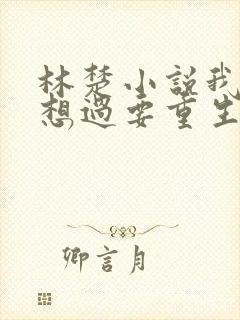 林楚小说我
想过要重生
卿言月